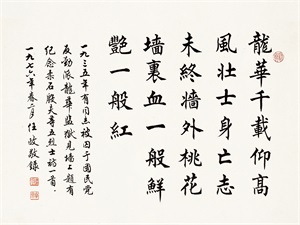 龍華千載仰高
風壯士身亡志
未終墙外桃花
墙裏血一般鮮
艷一般紅
一九三五年有同志被囚于國民党
反動派龍華监獄見墙上題有
纪念柔石殷夫等五烈士詩一首
一九七六年春三月任政敬錄